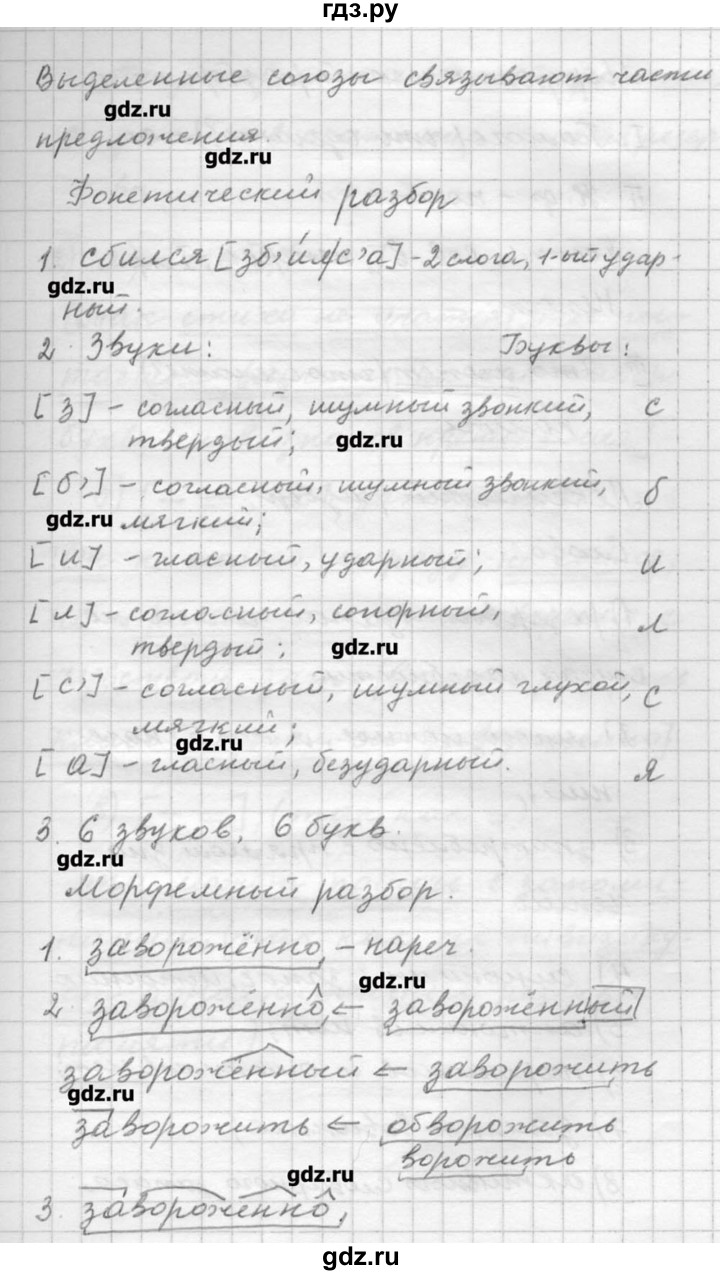 гдз.ру
Выделенные союзы связывают части
gdz.ru
предложения.
gdz.ru
Фонетический разбор
1. сбился [зб'и́л/с'а] - 2 слога, 1-ый удар-
gdz.ru
ный.
2 Звуки: Буквы:
[з] - согласный, шумный звонкий, с
твердый; gdz.ru
[б'] - согласный, шумный звонкий, б
gdz.ru мягкий;
[и] - гласный, ударный; и
[л] - согласный, сонорный, л
твердый; gdz.ru
[с'] - согласный, шумный глухой, с
мягкий;
gdz.ru
[а] - гласный, безударный. я
3. 6 звуков, 6 букв.
gdz.ru
Морфемный разбор.
1. заворожённо, - нареч.
gdz.ru
2 заворожённо ← заворожённый
заворожённый ← заворожить
gdz.ru
заворожить ← обворожить
ворожить
gdz.ru
3. заворожённо,
gdz.ru